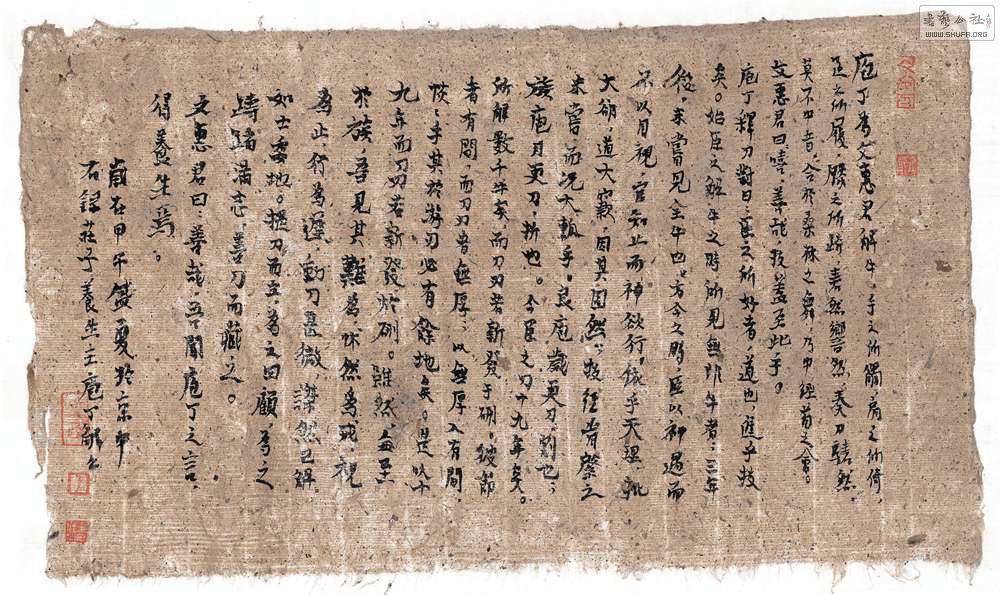 庖丁为文惠君解牛，手之所觸，肩之所倚，
足之所履，膝之所踦，砉然嚮然，奏刀騞然，
莫不中音。合於桑林之舞，乃中經首之會。
文惠君曰：嘻，善哉！技蓋至此乎？
庖丁釋刀對曰：臣之所好者，道也，進乎技
矣。始臣之解牛之時，所見無非牛者；三年之
後，未嘗見全牛也；方今之時，臣以神遇而
不以目視，官知止而神欲行。依乎天理，批
大郤，道大窾，因其固然；技經肯綮之
未嘗，而況大軱乎！良庖歲更刀，割也；
族庖月更刀，折也。今臣之刀十九年矣。
所解數千牛矣，而刀刃若新發于硎。彼節
者有間，而刀刃者無厚；以無厚入有間，
恢恢乎其於游刃必有餘地矣。是以十
九年而刀刃若新發於硎。雖然，每至
於族，吾見其難為，怵然為戒，視
為止，行為遲，動刀甚微，謋然已解，
如土委地。提刀而立，為之四顧，為之
躊躇滿志，善刀而藏之。
文惠君曰：善哉，吾聞庖丁之言，
得養生焉。
歲在甲午盛夏於京中
石錄莊子養生主庖丁解牛
书艺公社
WWW.SHUFA.ORG